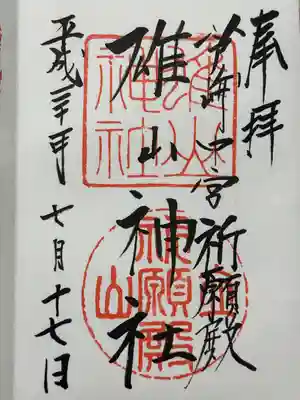 奉拝
中宮祈願殿
雄山神社
平成三十年 七月十七日
雄山神社
立山
祈願殿